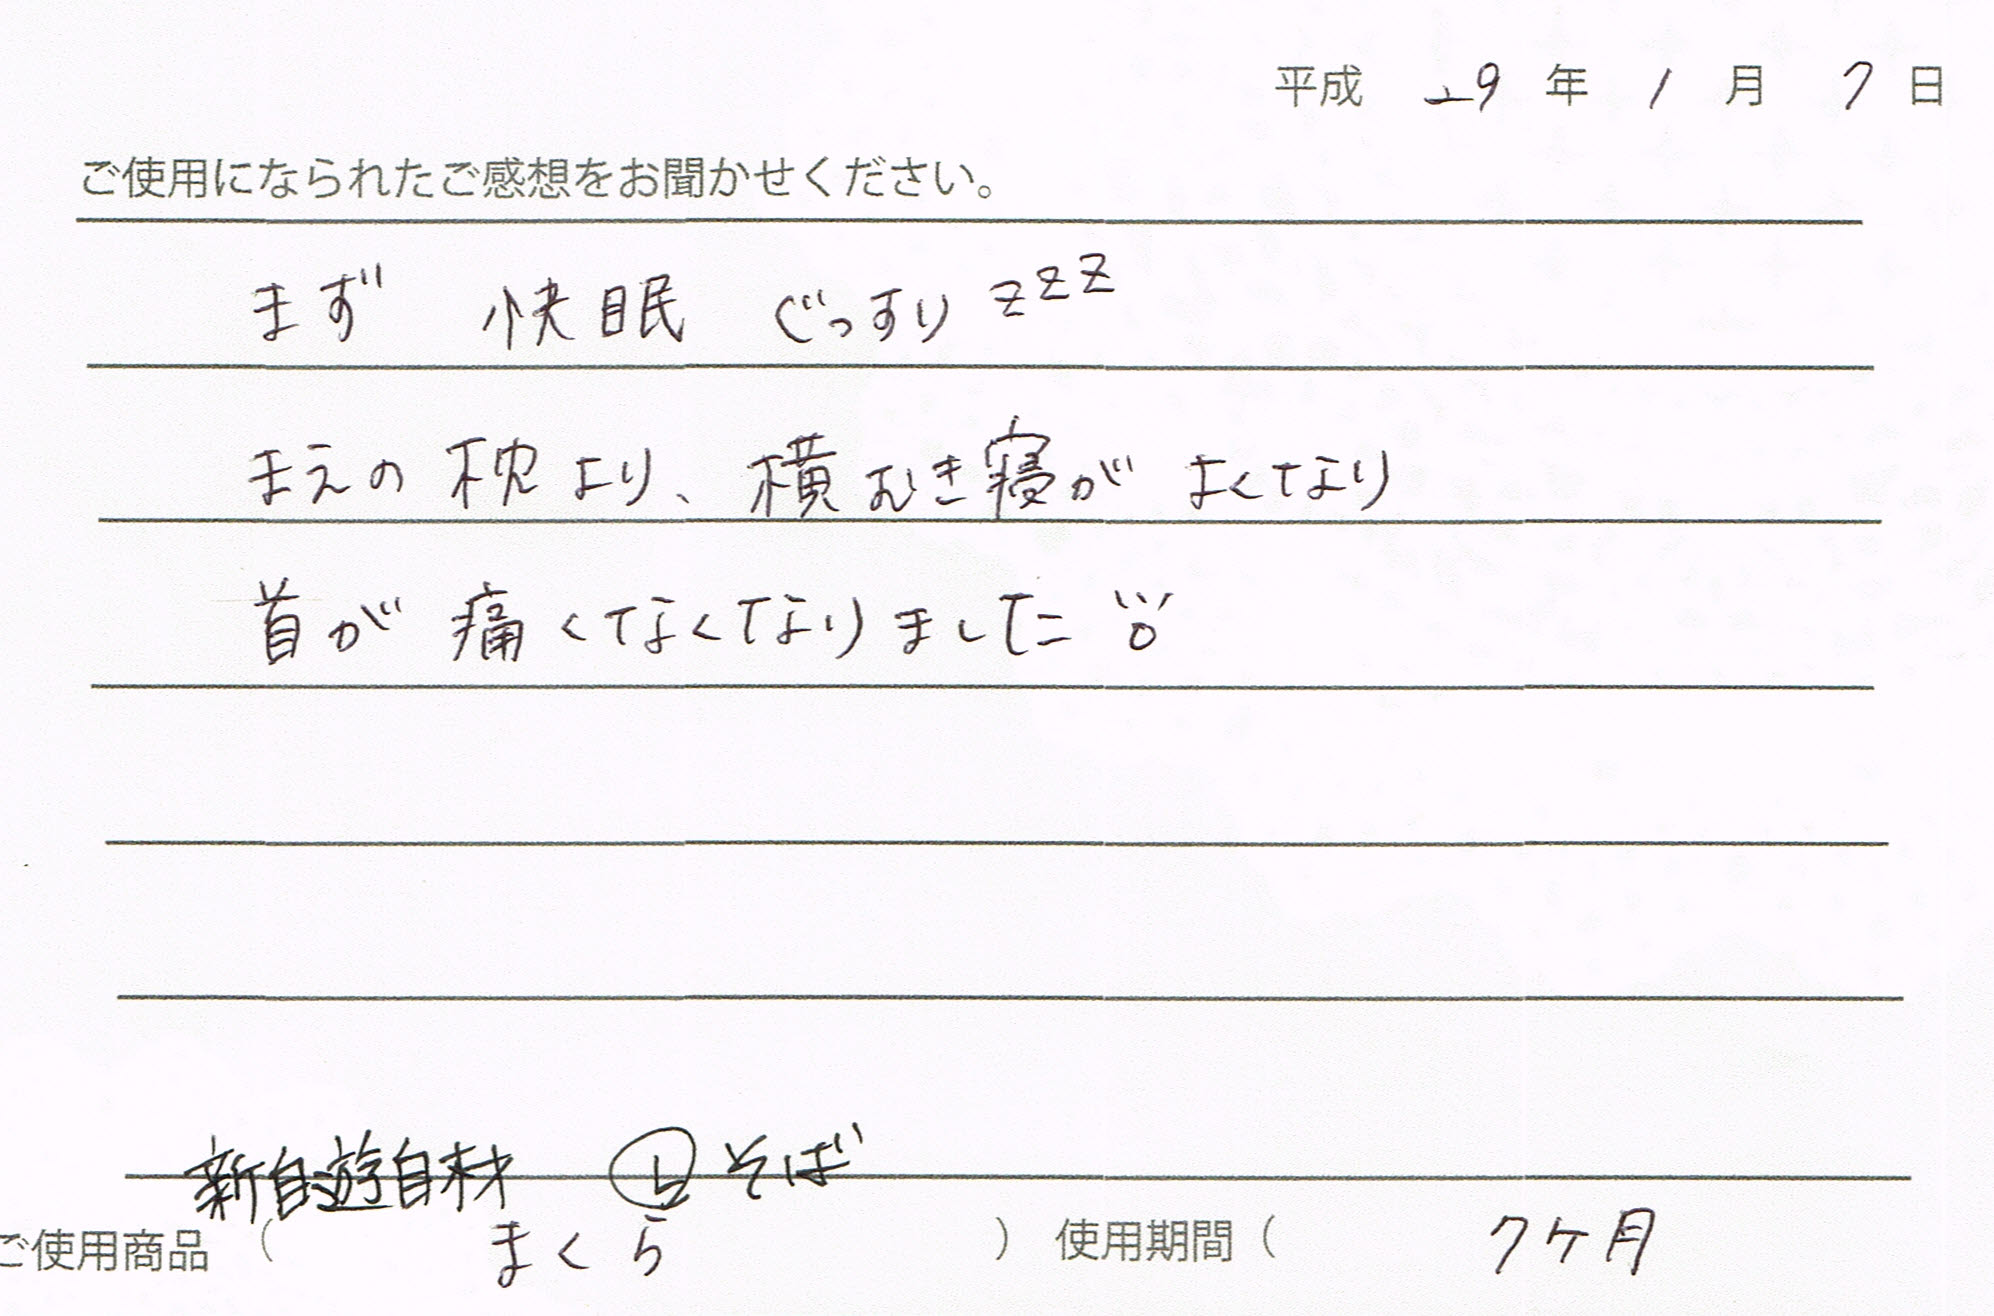 平成 29 年 1 月 7 日
ご使用になられたご感想をお聞かせください。
まず 快眠 ぐっすり zzz
まえの枕より、横むき寝がよくなり
首が痛くなくなりました
新自遊自材 そば
ご使用商品 ( まくら ) 使用期間 ( 7ヶ月